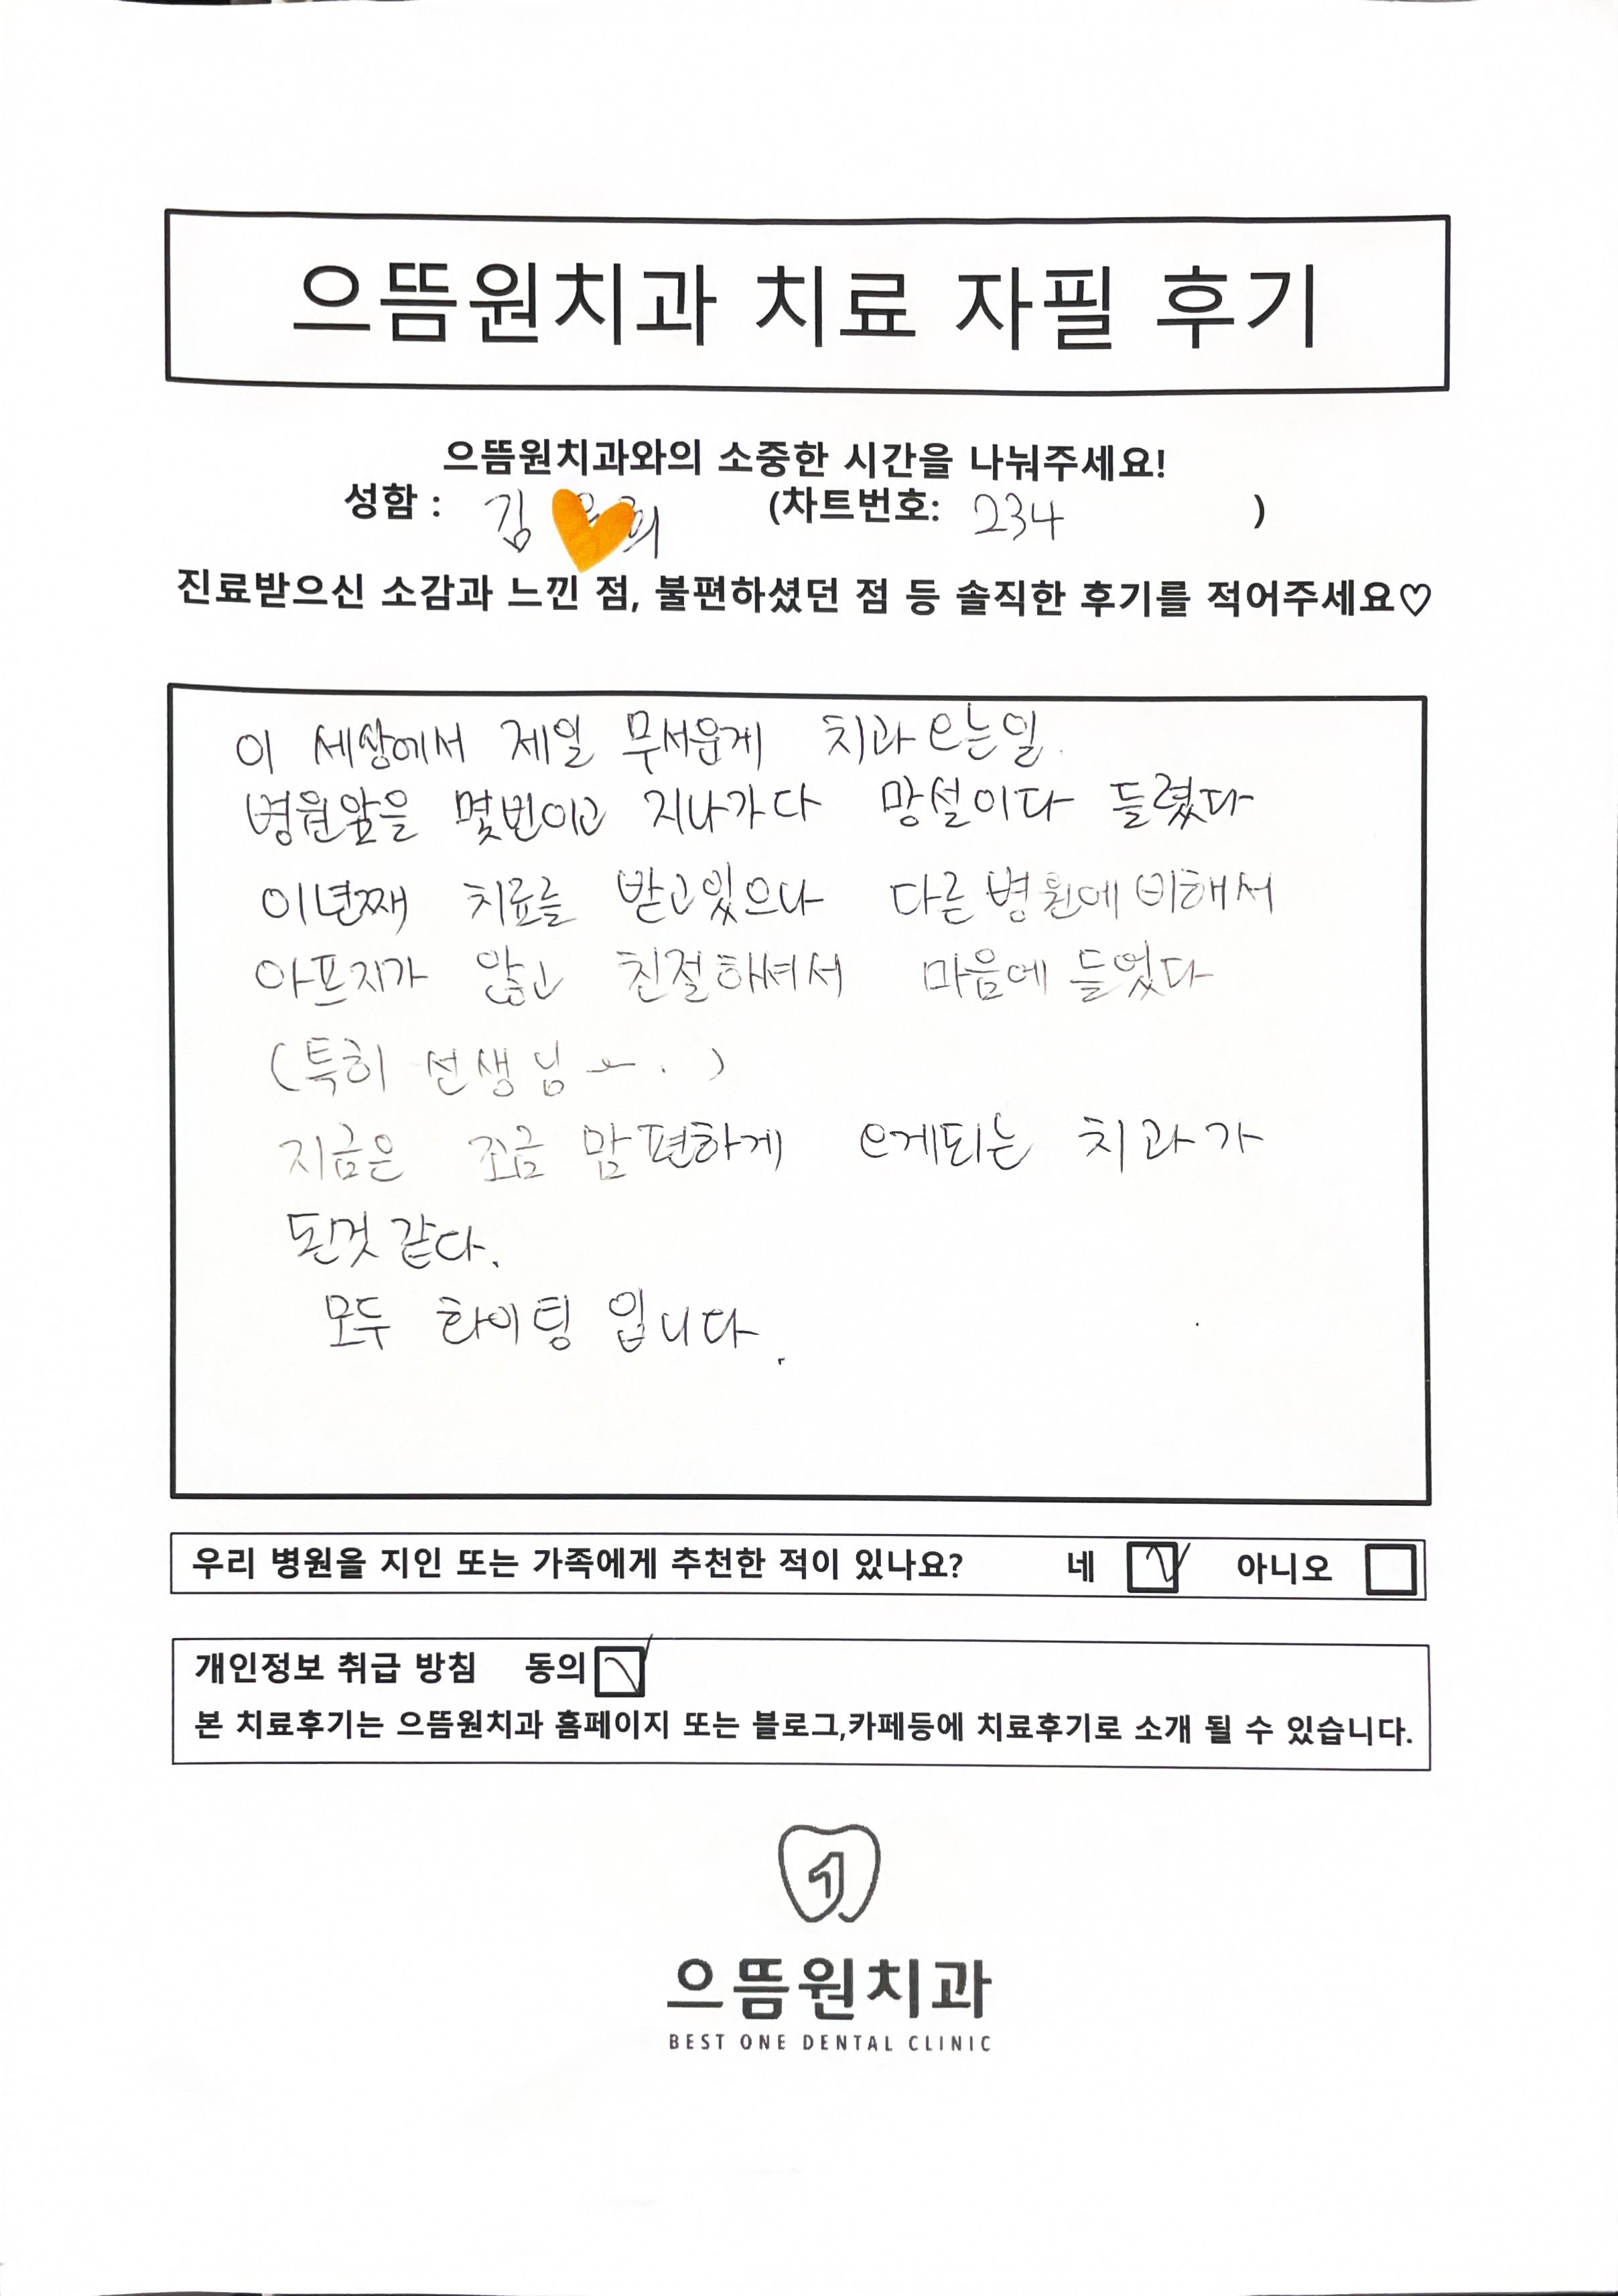 으뜸원치과 치료 자필 후기
으뜸원치과와의 소중한 시간을 나눠주세요!
성함 : 김 희 (차트번호: 234 )
진료받으신 소감과 느낀 점, 불편하셨던 점 등 솔직한 후기를 적어주세요♡
이 세상에서 제일 무서운게 치과 오는일.
병원앞을 몇번이고 지나가다 망설이다 들렸다
이년째 치료를 받고있으나 다른 병원에 비해서
아프지가 않고 친절하셔서 마음에 들었다
(특히 선생님~.)
지금은 조금 맘편하게 오게되는 치과가
된것 같다.
모두 화이팅 입니다.
우리 병원을 지인 또는 가족에게 추천한 적이 있나요? 네 아니오
개인정보 취급 방침 동의
본 치료후기는 으뜸원치과 홈페이지 또는 블로그,카페등에 치료후기로 소개 될 수 있습니다.
1
으뜸원치과
BEST ONE DENTAL CLINIC